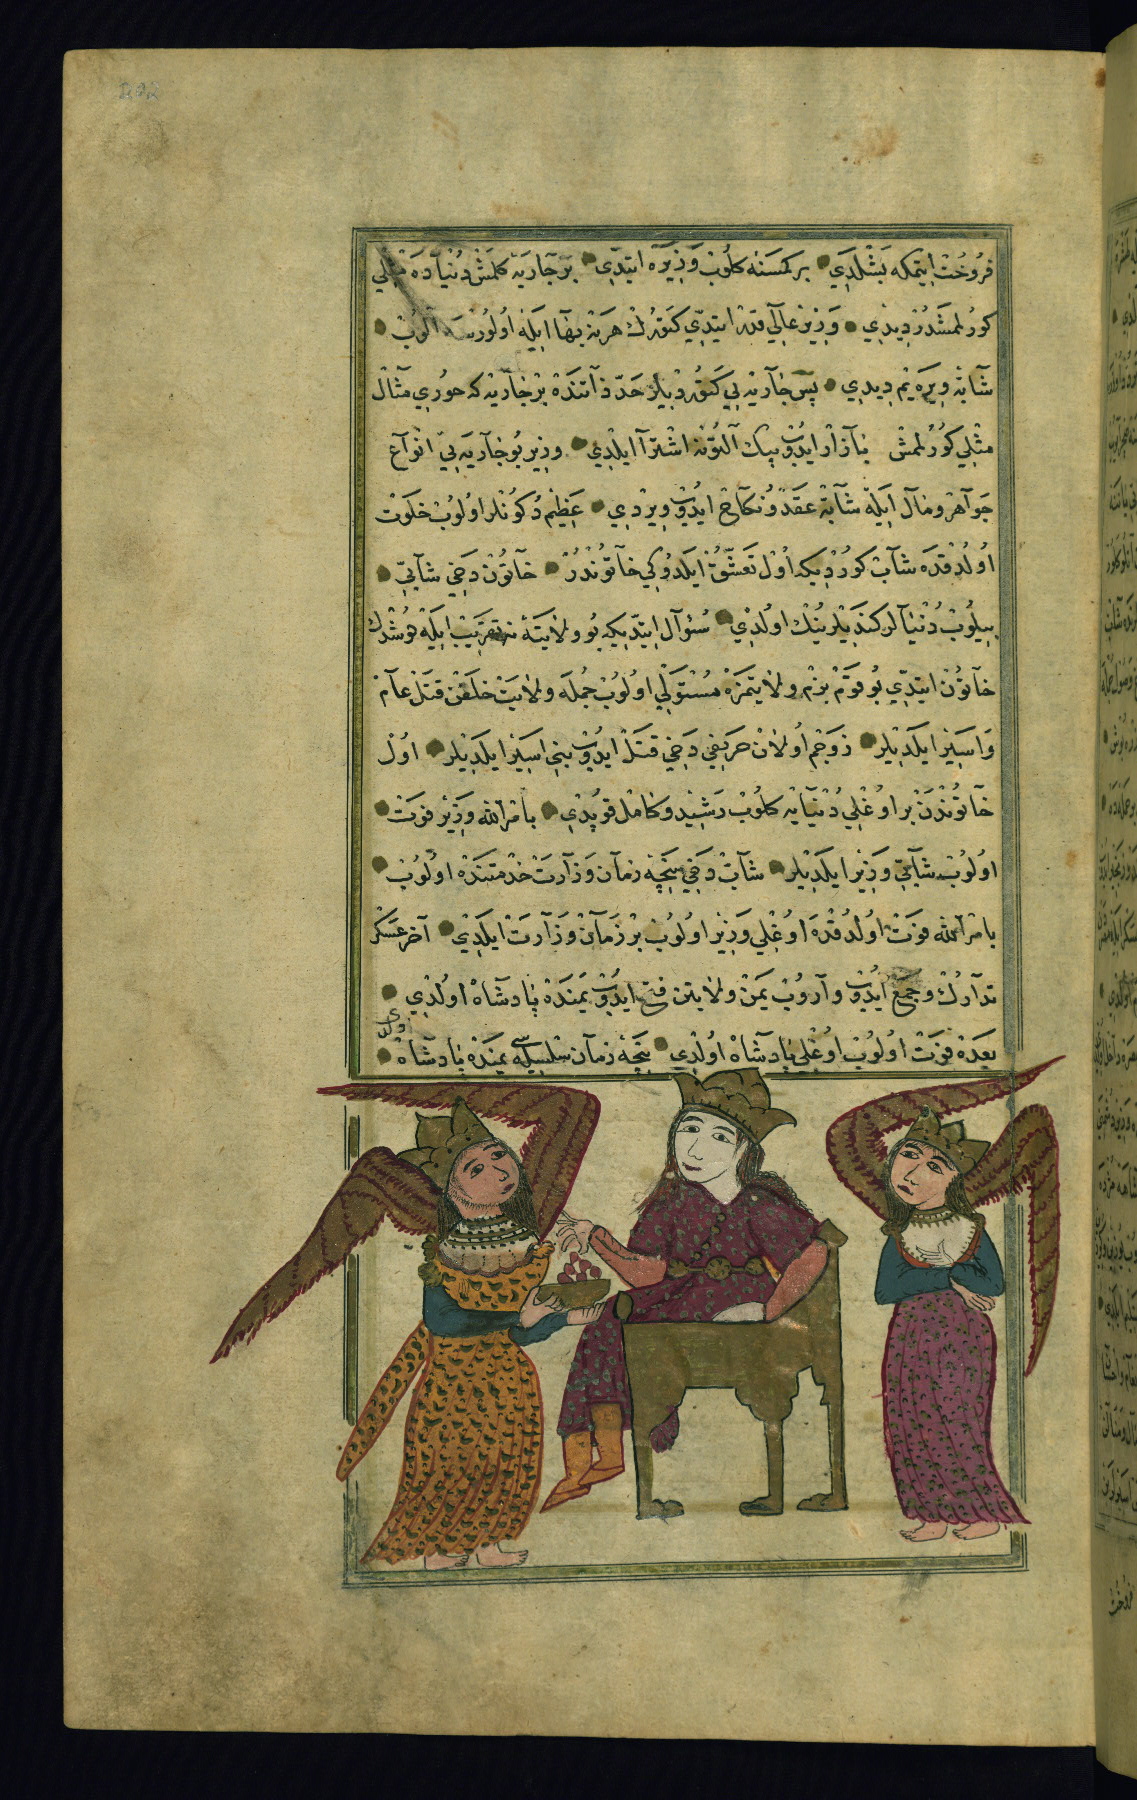 فروخت ایتمکه بشلدی بر کمسنه کلوب وزیره ایتدی بر جاریه کلمش دنیاده مثلی
کورلمشدر دیدی وزیر عالی قدر ایتدی کتورك هر نه بها ایله اولورسه الوب
شابه ویره یم دیدی پس جاریه یی کتوردیلر حد ذاتنده بر جاریه که حوری مثال
مثلی کورلمش بازار ایدوب بیك التونه اشترا ایلدی وزیر بو جاریه یی انواع
جواهر و مال ایله شابه عقد و نکاح ایدوب ویردی عظیم دکونلر اولوب خلوت
اولدقده شاب کوردیکه اول تعشق ایلدوکی خاتوندر خاتون دخی شابی
بیلوب دنیالر کندیلرینك اولدی سئوال ایتدیکه بو ولایته نه تقریب ایله دوشدك
خاتون ایتدی بو قوم بزم ولایتمزه مستولی اولوب جمله ولایت خلقن قتل عام
و اسیر ایلدیلر زوجم اولان حریفی دخی قتل ایدوب بنی اسیر ایلدیلر اول
خاتوندن بر اوغلی دنیایه کلوب رشید و کامل قوپدی بامر الله وزیر فوت
اولوب شابی وزیر ایلدیلر شاب دخی نیجه زمان وزارت خدمتنده اولوب
بامر الله فوت اولدقده اوغلی وزیر اولوب بر زمان وزارت ایلدی آخر عسکر
تدارك و جمع ایدوب واروب یمن ولایتن فتح ایدوب یمنده پادشاه اولدی
بعده فوت اولوب اوغلی پادشاه اولدی نیجه زمان سلسله سی یمنده پادشاه